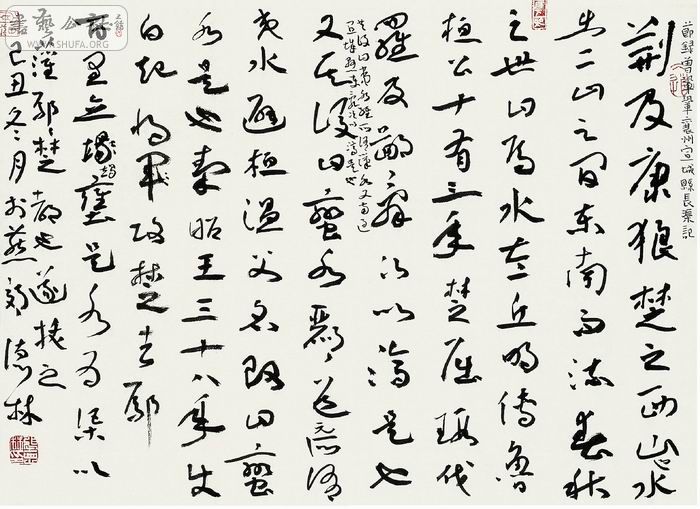 節録曾鞏襄州宜城縣長渠記
荆及康狼楚之西山也水
出二山之間東南而流春秋
之世曰鄢水左丘明傳魯
桓公十有三年楚屈瑕伐
羅及鄢亂次以濟是也
其後曰夷水水經所謂漢水又南過
宜城縣東夷水注之是也
又其後曰蠻水酈道元所謂
夷水避桓温父名改曰蠻
水是也秦昭王三十八年使
白起将軍攻楚去鄢
百里立堨壅是水為渠以
灌鄢鄢楚都也遂拔之
己丑冬月於燕郊德林
WWW.SHUFA.ORG